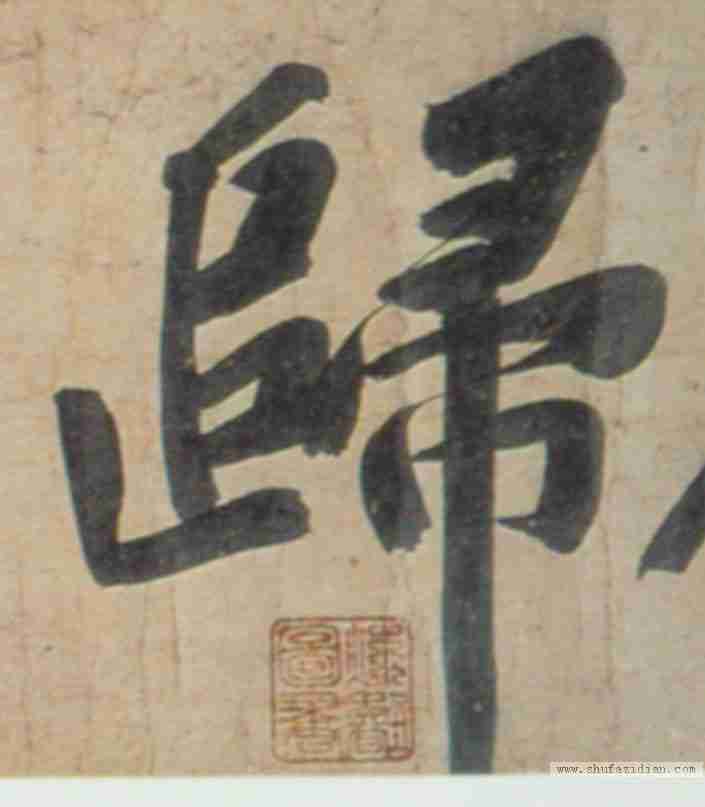 歸
www.shufazidian.com